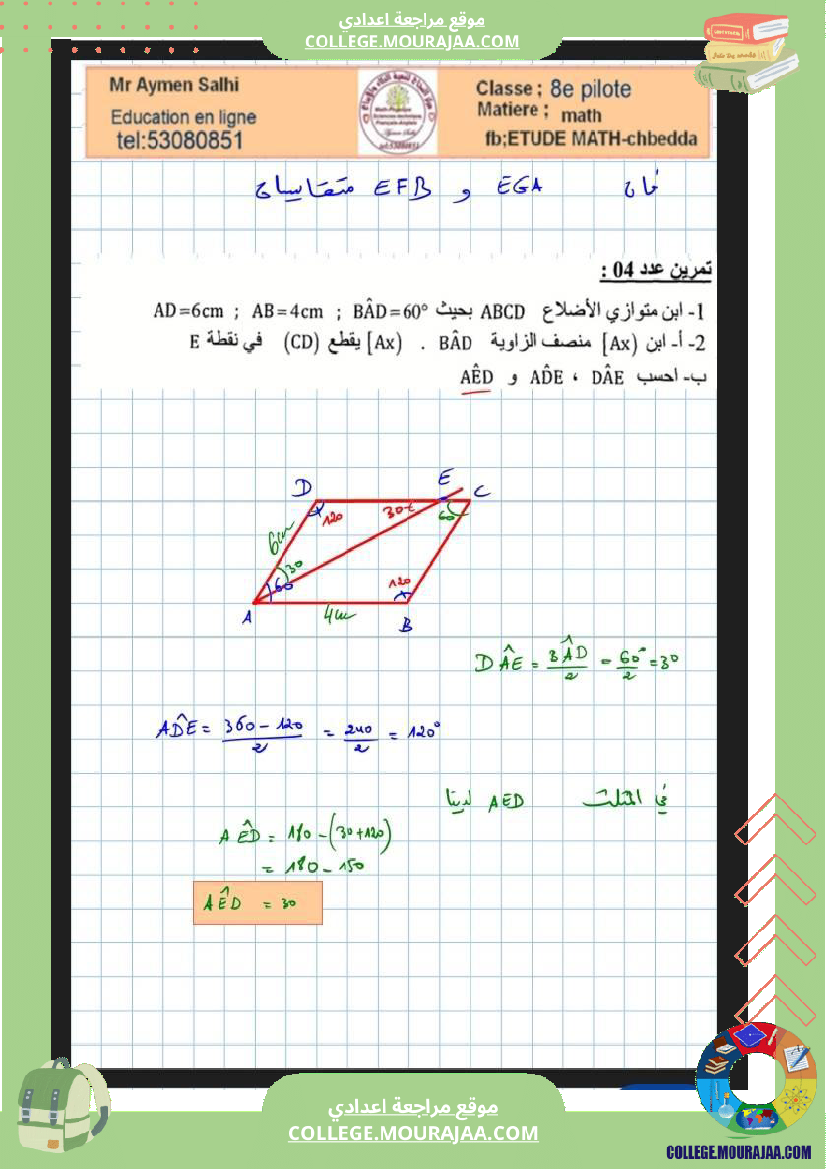 موقع مراجعة اعدادي
COLLEGE.MOURAJAA.COM
Mr Aymen Salhi
Education en ligne
tel:53080851
Classe ; 8e pilote
Matiere ; math
fb;ETUDE MATH-chbedda
فإن EGA و EFB متقايسان
تمرين عدد 04 :
1- ابن متوازي الأضلاع ABCD بحيث AD=6cm ; AB=4cm ; BÂD=60°
2- أ- ابن [Ax) منصف الزاوية BÂD . [Ax) يقطع (CD) في نقطة E
ب- احسب DÂE ، AD̂E و AÊD
D E C
120 30 60
6cm
30
60 120
A 4cm B
DÂE = BÂD/2 = 60°/2 = 30
AD̂E = 360-120/2 = 240/2 = 120°
في المثلث AED لدينا
AÊD = 180-(30+120)
= 180-150
AÊD = 30
موقع مراجعة اعدادي
COLLEGE.MOURAJAA.COM
COLLEGE.MOURAJAA.COM